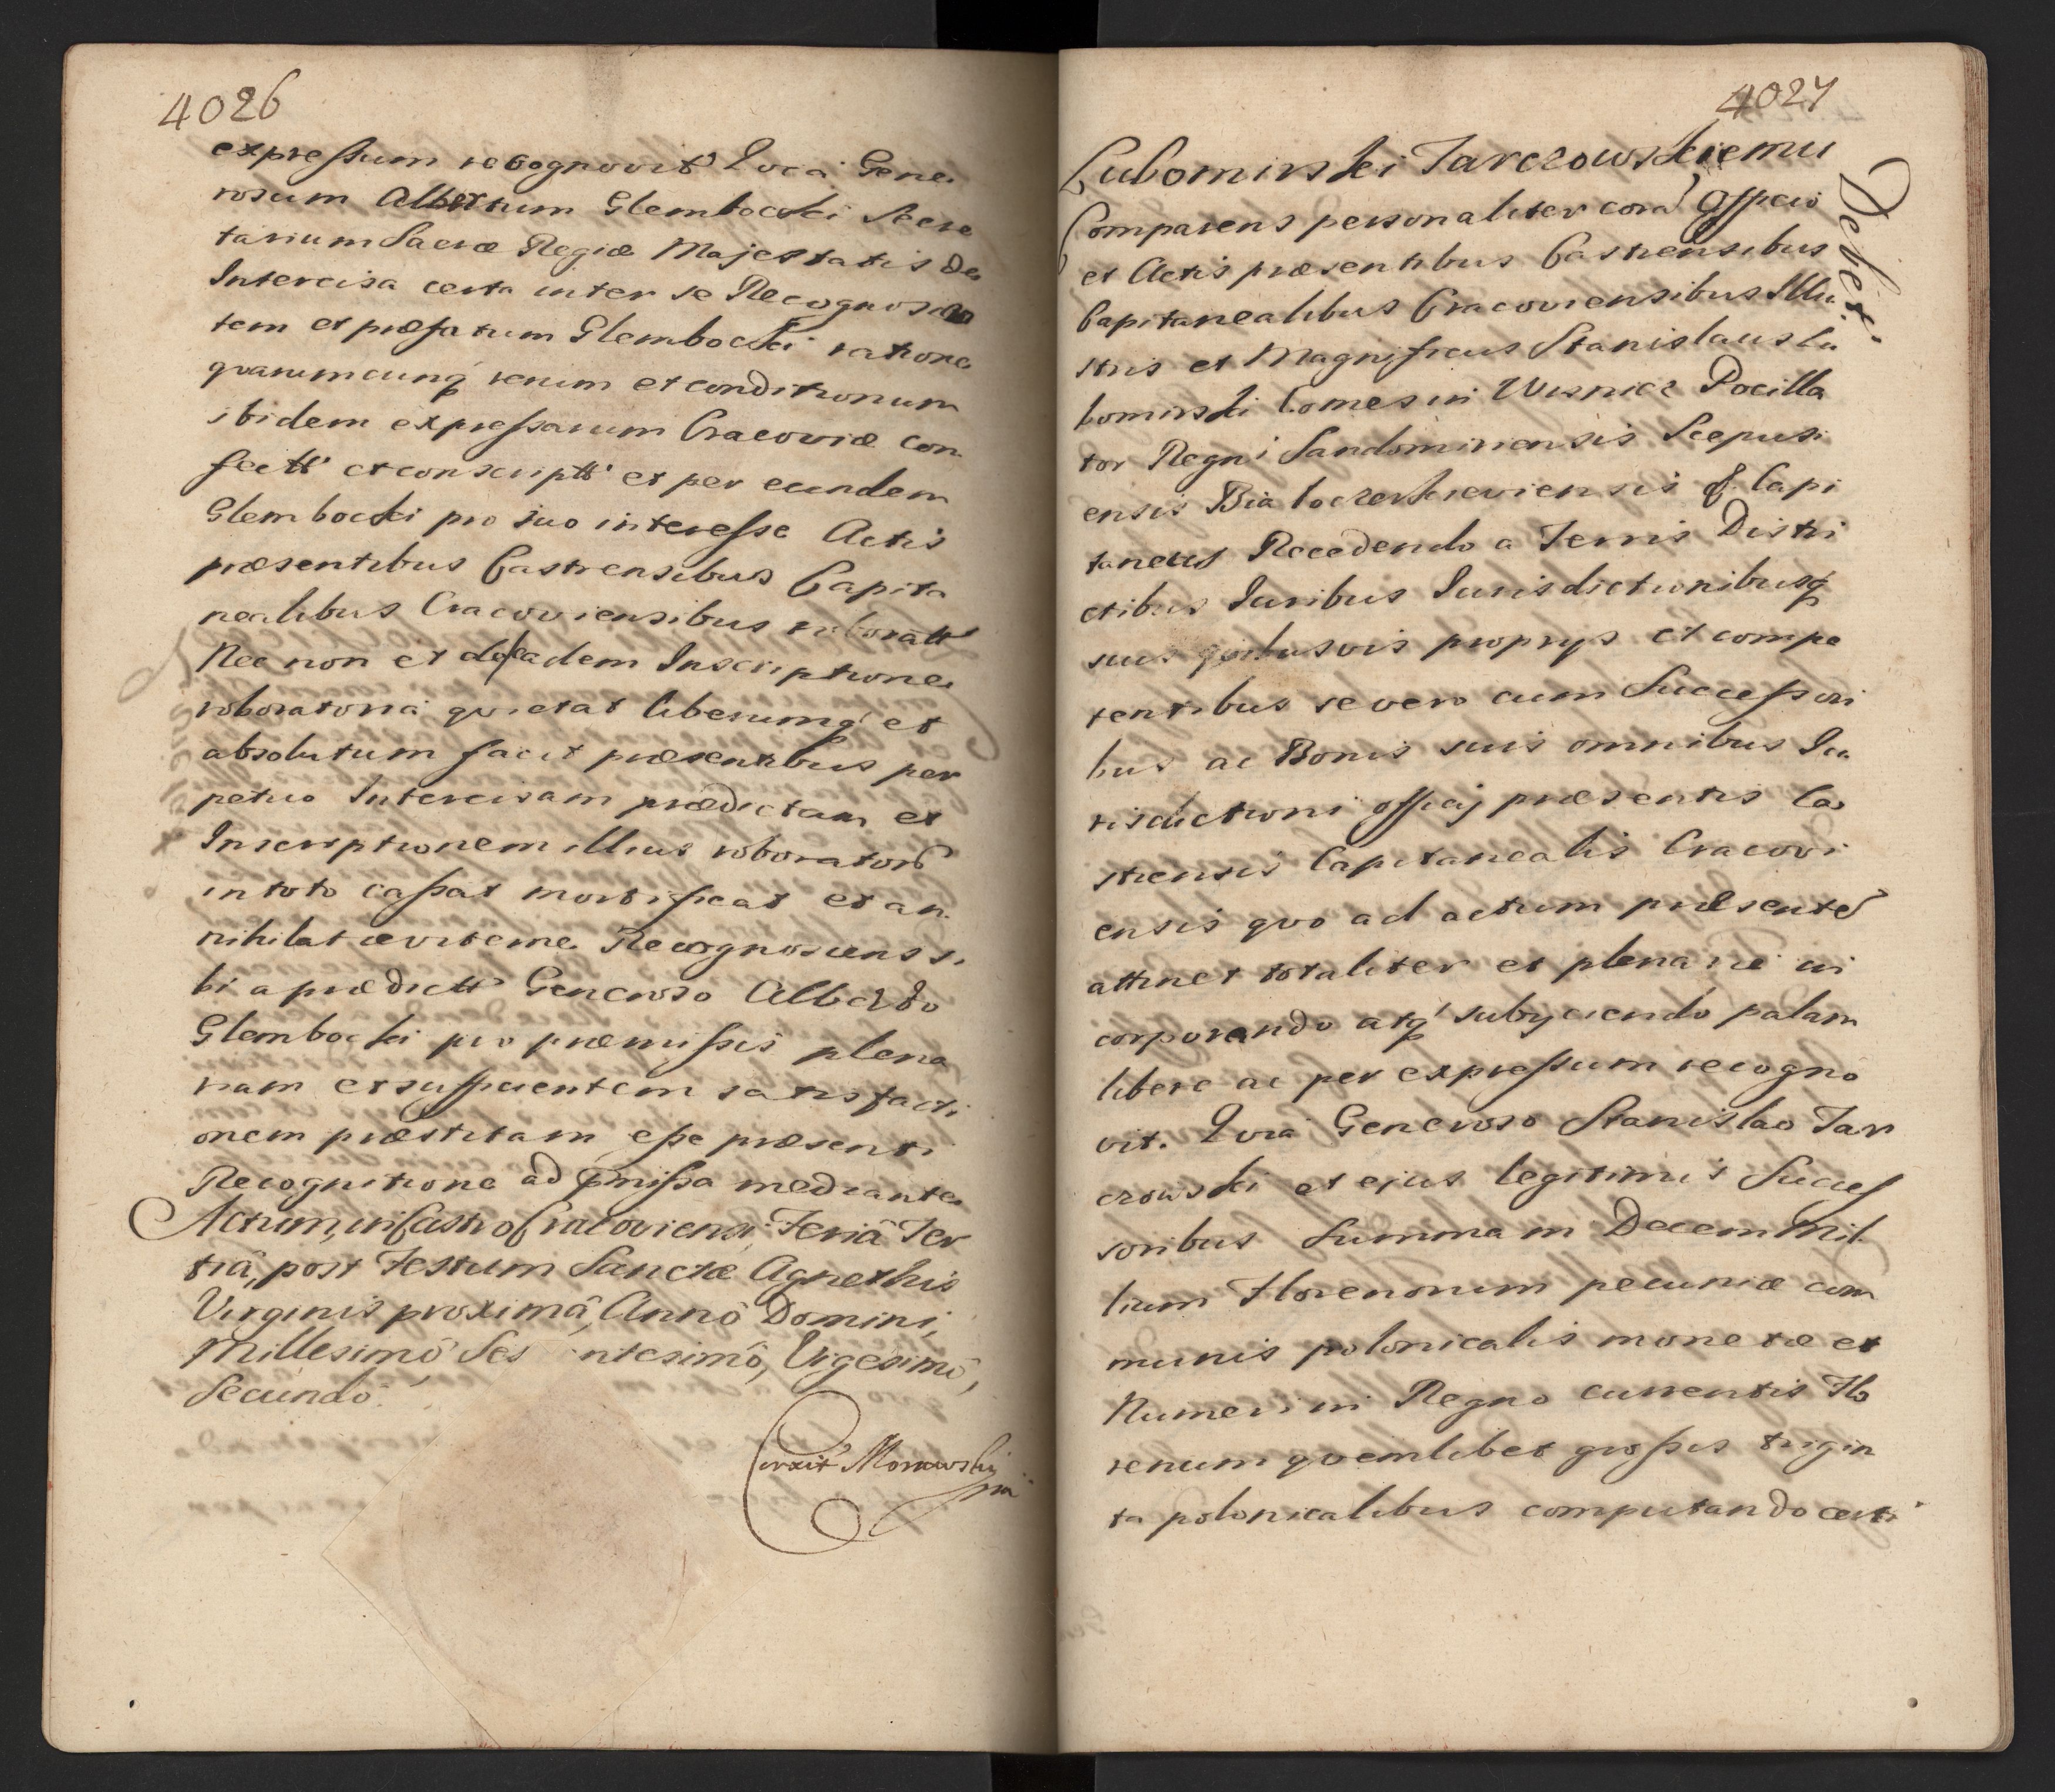 4026
expressum recognovit Qvia Gene
rosum Albertum Glembocki Secre
tarium Sacræ Regiæ Majestatis de
Intercisa certa inter se Recognoscen
tem et præfatum Glembocki ratione
qvarumcunq̃ rerum et conditionum
ibidem expressarum Cracoviæ con
fectt' et conscriptt' et per eundem
Glembocki pro suo interesse Actis
præsentibus Castrensibus Capita
nealibus Cracoviensibus roboratt'
Nec non et de eadem Inscriptione
roboratoria qvietat liberumq̃ et
absolutum facit præsentibus per
petuo Intercisam prædictam et
Inscriptionem illius roborator̃
in toto cassat mortificat et an
nihilat æviterne Recognoscens si
bi a prædictt' Generoso Alberto
Glembocki pro præmissis plena
riam et sufficientem satisfacti
onem præstitam esse præsenti
Recognitione ad p̃missa mediante
Actum, in Castro Cracoviensi Feriâ Ter
tiâ, post Festum Sanctæ Agnethis
Virginis proximâ, Annô Domini,
Millesimô Ses ntesimô, Vigesimô,
Secundô.
Corexit Morawski
mp
4027
Lubomirski Tarczowskiemu
Debet.
Comparens personaliter corã Officio
et Actis præsentibus Castrensibus
Capitanealibus Cracoviensibus Illu
stris et Magnificus Stanislaus Lu
bomirski Comes in Wisnicz Pocilla
tor Regni Sandomiriensis Scepusi
ensis Bialocerkieviensis & Capi
taneus Recedendo a Terris Distri
ctibus Iuribus Iurisdictionibusq̃
suis qvibusvis proprys et compe
tentibus se vero cum Successori
bus ac Bonis suis omnibus Iu
risdictioni officij præsentis Ca
strensis Capitanealis Cracovi
ensis qvo ad actum præsentẽ
attinet totaliter et plenarie in
corporando atq̃ subyciendo palam
libere ac per expressum recogno
vit. Qvia Generoso Stanislao Tar
czowski et ejus legitimis Succes
soribus Summam Decem Mil
lium Florenorum pecuniæ com
munis polonicalis monetæ et
Numeri in Regno currentis Flo
renum qvemlibet grossis trigin
ta polonicalibus computando certi